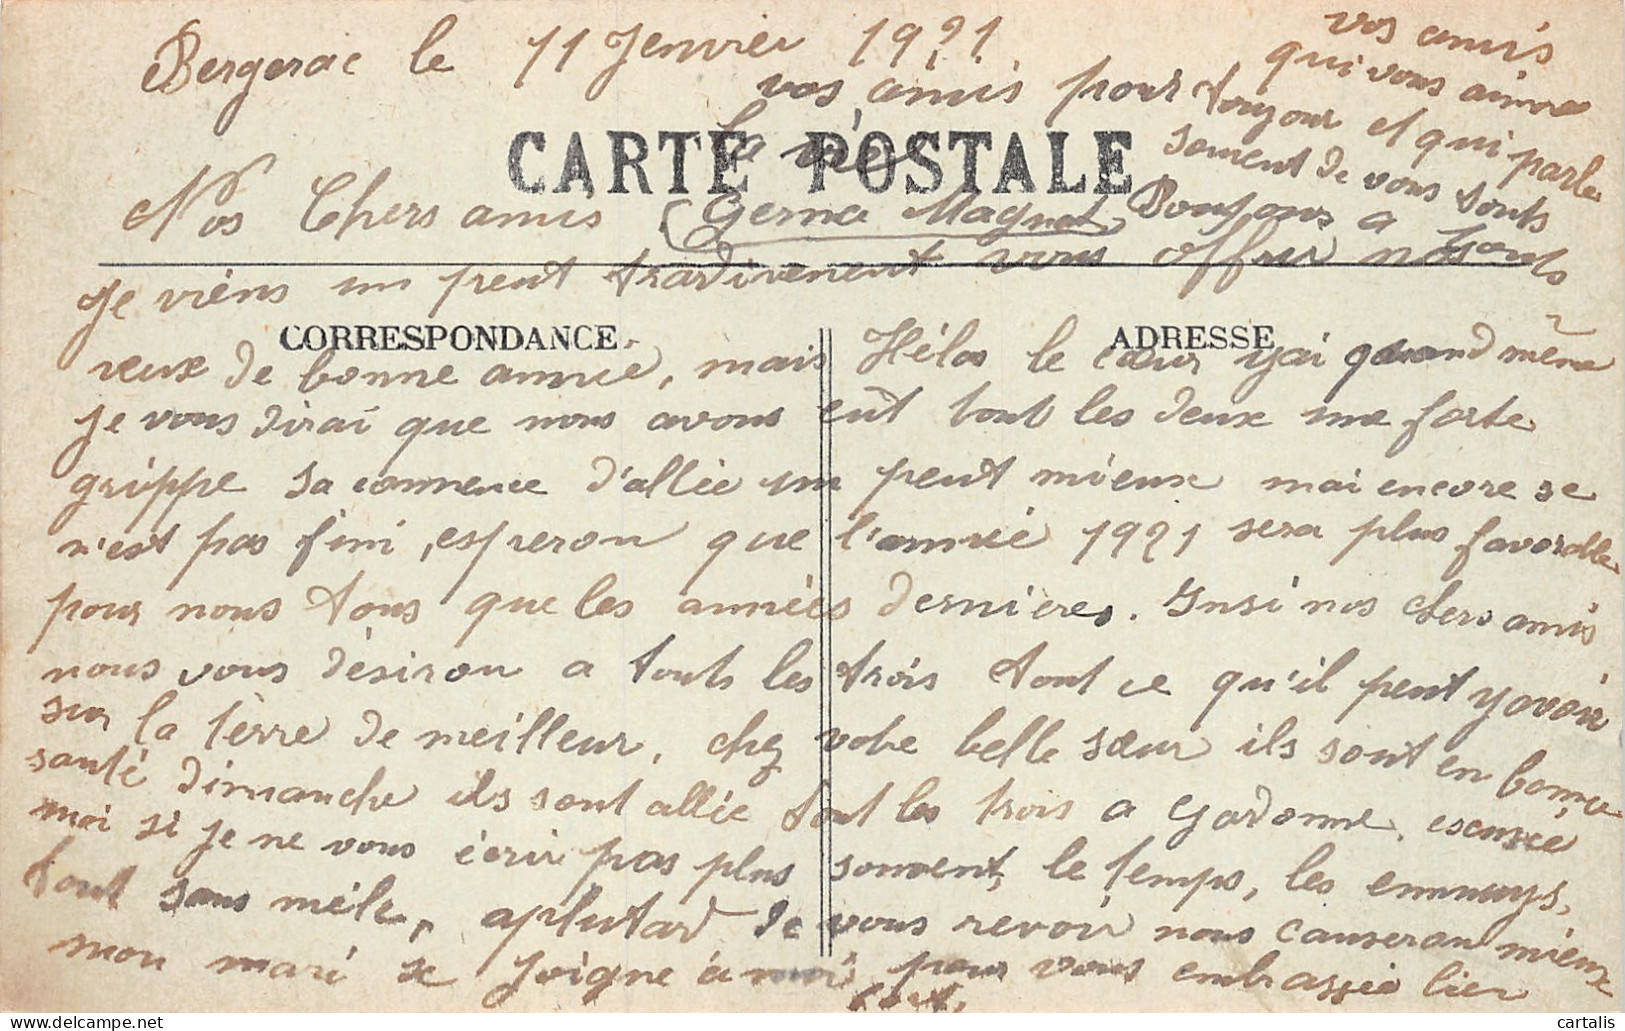 Bergerac le 11 Jenvier 1921
CARTE POSTALE
Nos Chers amis
je viens un peut tradivement vous offrir nos
CORRESPONDANCE
ADRESSE
veux de bonne année, mais Hélas le cœur y ai quand même
je vous dirai que nous avons eut tout les deux une forte
grippe sa commence d'allée un peut mieux mai encore se
n'est pas fini, esperon que l'année 1921 sera plus favorable
pour nous tous que les années dernières. Insi nos chers amis
nous vous désiron a touts les trois tout ce qu'il peut y avoir
sur la terre de meilleur, chez votre belle sœur ils sont en bonne
santé dimanche ils sont allée tout les trois a Gardonne. escusée
moi si je ne vous écrir pas plus souvent, le temps, les ennuys,
tout sans mêle, aplutard de vous revoir nous causeron mieux
mon mari se joigne à moi pour vous embrassée bien
fort.
vos amis pour
la vie
Gerna Magnol
vos amis
qui vous aime
toujour et qui parle
soment de vous touts
Bonjour a
touts
cartalis